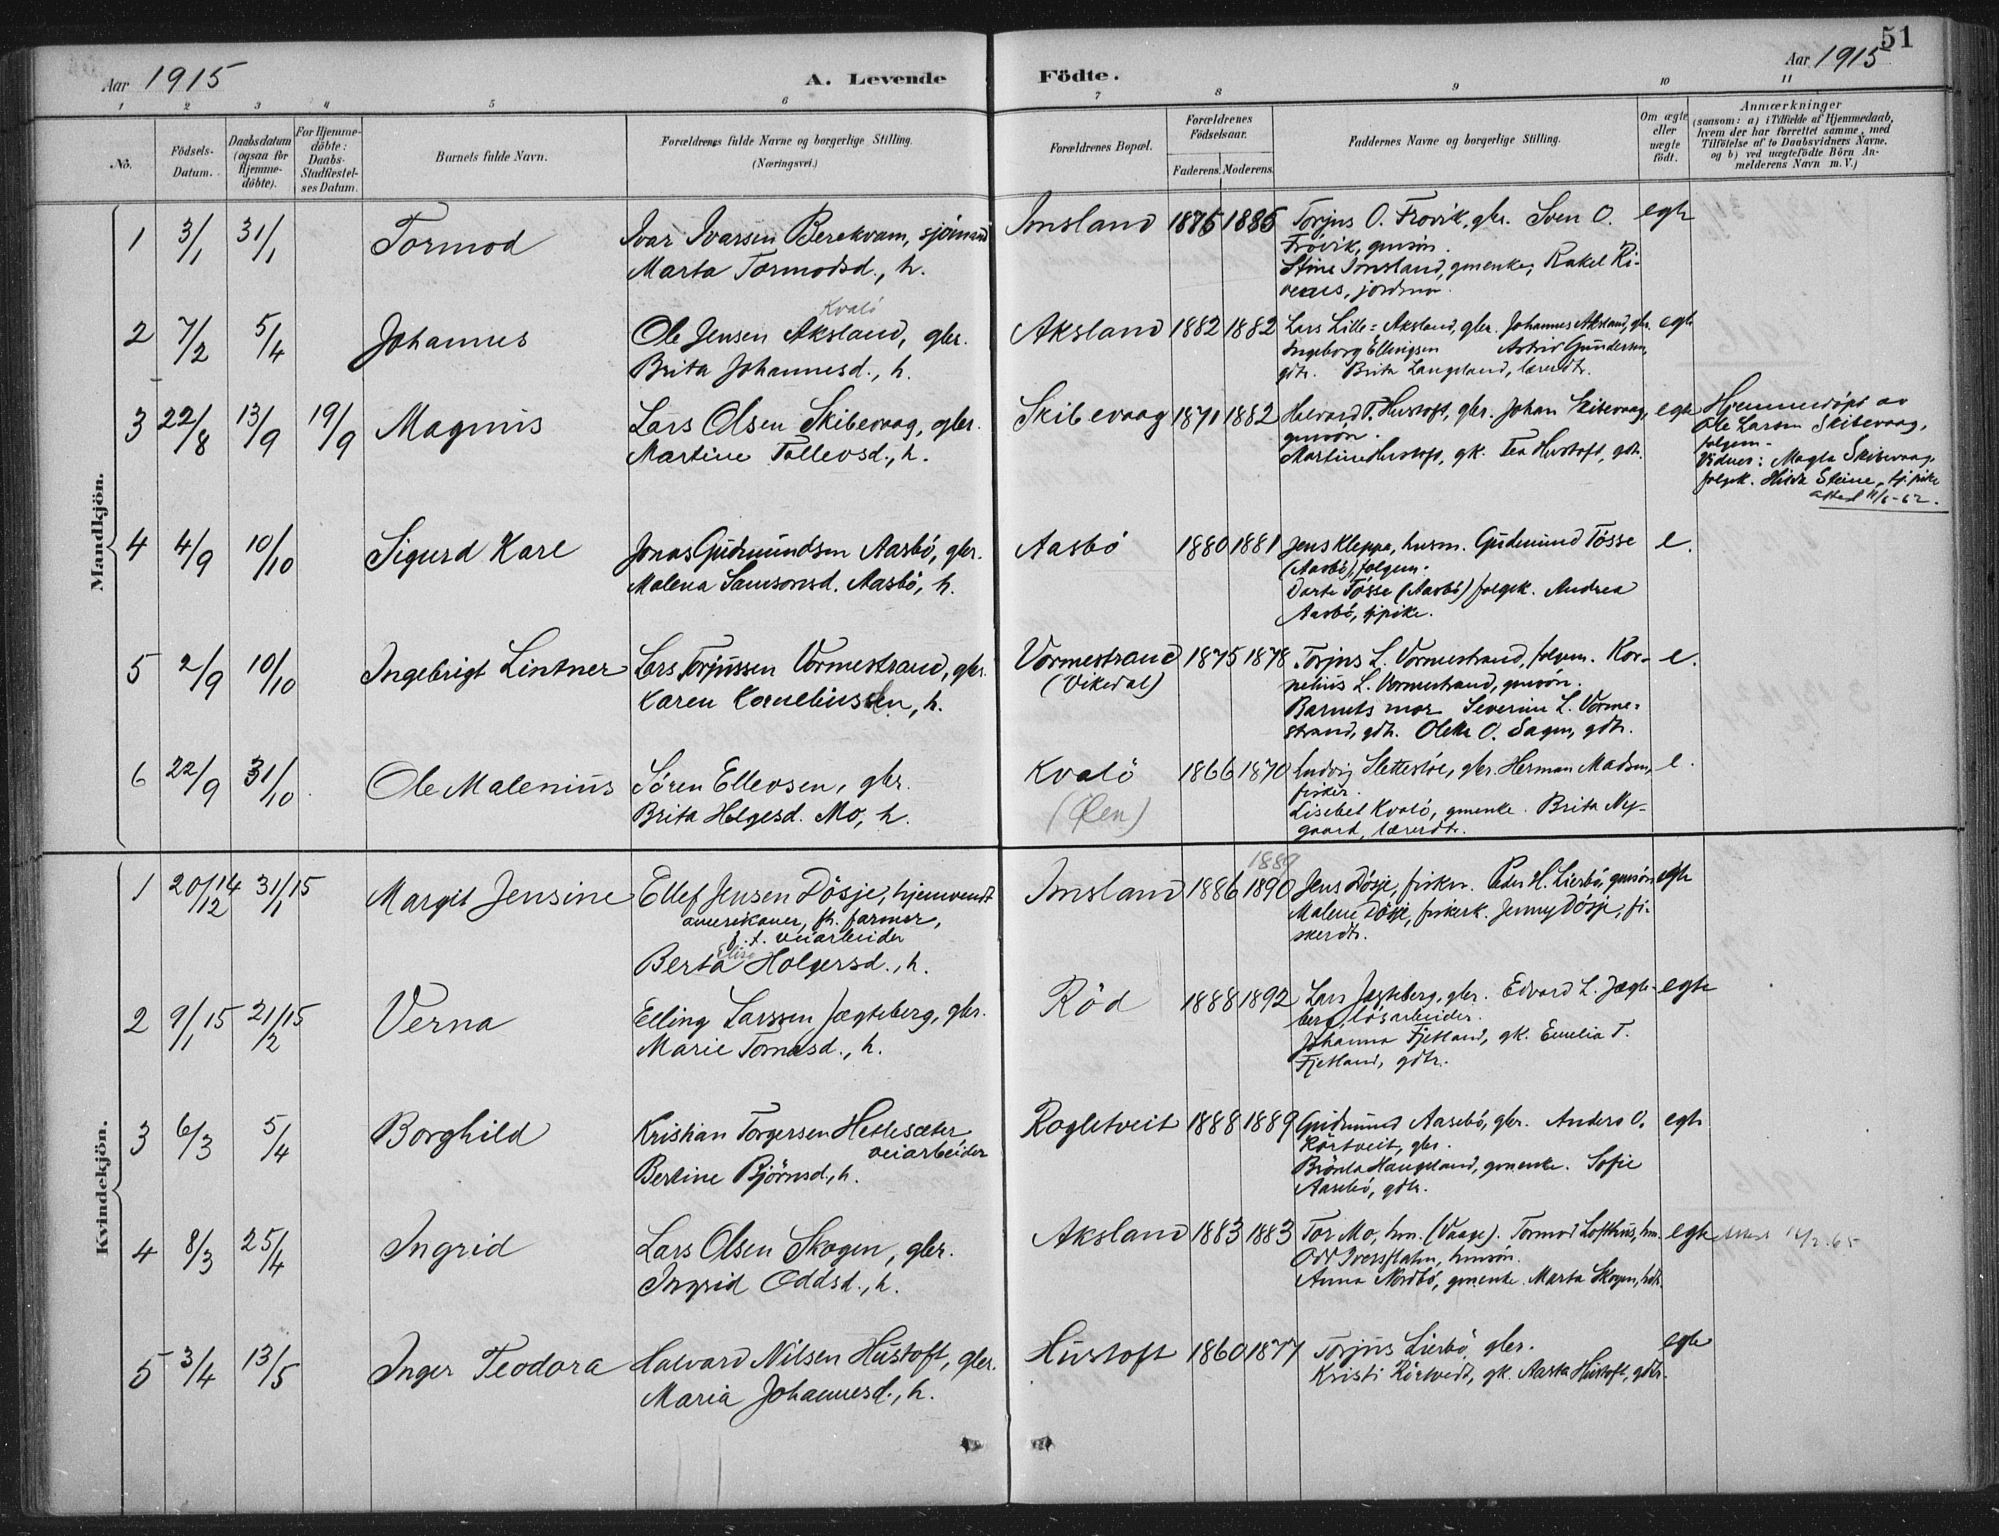 51
Aar 1915
A. Levende Födte.
Aar 1915
1 2 3 4 5 6 7 8 9 10 11
Nô.
Födsels-Datum.
Daabsdatum (ogsaa for Hjemme-döbte).
For Hjemme-döbte: Daabs-Stadfæstel-ses Datum.
Barnets fulde Navn.
Forældrenes fulde Navne og borgerlige Stilling.
(Næringsvei.)
Forældrenes Bopæl.
Forældrenes Födselsaar.
Faderens. Moderens.
Faddernes Navne og borgerlige Stilling.
Om ægte eller uægte födt.
Anmærkninger
(saasom: a) i Tilfælde af Hjemmedaab,
hvem der har forrettet samme, med
Tilföielse af to Daabsvidners Navne.
og b) ved uægtefödte Börn An-
melderens Navn m. V.)
Mandkjön.
1 3/1 31/1 Tormod
Ivar Ivarsen Berekvam, sjömand
Marta Tormodsd., h.
Imsland 1875 1885
Torjus O. Frövik, gbr. Sven O.
Frövik, gmsön.
Stine Imsland, gmenke, Rakel Ri-
venes, jordmor.
egte
2 7/2 5/4 Johannes
Kvalö
Ole Jensen Aksland, gbr.
Brita Johannesd., h.
Aksland 1882 1882
Lars Lille-Aksland, gbr. Johannes Aksland, gbr.
Ingeborg Ellingsen Astrid Gundersen,
gdtr. Brita Langeland, lærerdtr.
egte
3 22/8 13/9 19/9 Magnus
Lars Olsen Skibevaag, gbr.
Martine Tollevsd., h.
Skibevaag 1871 1882
Halvard T. Hustoft, gbr. Johan Skibevaag,
gmsön.
Martine Hustoft, gk. Tea Hustoft, gdt.
egte
Hjemmedöpt av
Ole Larsen Skibevaag,
folgem.
Vidner: Magla Skibevaag,
folgek. Hilda Steine, tj.pike
attest 11/6-62.
4 4/9 10/10 Sigurd Kare
Jonas Gudmundsen Aasbö, gbr.
Malena Samsonsd. Aasbö, h.
Aasbö 1880 1881
Jens Kleppa, husm. Gudmund Tösse
(Aasbö), folgem.
Dorte Tösse (Aasbö) folgek. Andrea
Aasbö, tjpike.
e.
5 2/9 10/10 Ingebrigt Lintner
Lars Torjussen Vormestrand, gbr.
Karen Korneliussen, h.
Vormestrand 1875 1878
(Vikedal)
Torjus L. Vormestrand, folgem. Kor-
nelius L. Vormestrand, gmsön.
Barnets mor Severine L. Vorme-
strand, gdtr. Olene O. Sagen, gdtr.
e.
6 22/9 31/10 Ole Malenius
Sören Ellevsen, gbr.
Brita Helgesd. Mo, h.
Kvalö 1866 1870
(Øen)
Ludvig Slettestöe, gbr. Herman Madsen,
fisker.
Lisebet Kvalö, gmenke. Brita Ny-
gaard, lærerdtr.
e.
Kvindekjön.
1 20/12 14 31/1 15 Margit Jensine
Ellef Jensen Dösje, hjemvendt
amerikaner, fh. farmer,
f. t. veiarbeider
Elise
Berta Holgersd., h.
Imsland 1886 1890
1889
Jens Dösje, fisker. Peder H. Lierbö, gmsön
Malene Dösje, fiskerk. Jenny Dösje, fi-
skerdtr.
egte
2 9/1 15 21/2 15 Verna
Elling Larssen Jægteberg, gbr.
Marie Tomasd., h.
Röd 1888 1892
Lars Jægteberg, gbr. Edvard L. Jægte-
berg, lösarbeider.
Johanna Fjetland, gk. Emelia T.
Fjetland, gdtr.
egte
3 6/3 5/4 Borghild
Kristian Torgersen Hettesæter
veiarbeider
Bertine Björnsd., h.
Rogletveit 1888 1889
Gudmund Aasebö, gbr. Anders O.
Rörtveit, gbr.
Brönla Haugeland, gmenke. Sofie
Aasebö, gdtr.
egte
4 8/3 25/4 Ingrid
Lars Olsen Skogen, gbr.
Ingrid Oddsd., h.
Aksland 1883 1883
Tor Mo, hm. (Vaage). Tormod Lofthus, hm.
Odd Iversflaten, hmsön.
Anna Nordbö, gmenke. Marta Skogen, hdtr.
egte
5 3/4 13/5 Inger Teodora
Halvard Nilsen Hustoft, gbr.
Maria Johannesd., h.
Hustoft 1860 1877
Torjus Lierbö, gbr.
Kristi Rörtvedt, gk. Aasta Hustoft, gdtr.
egte